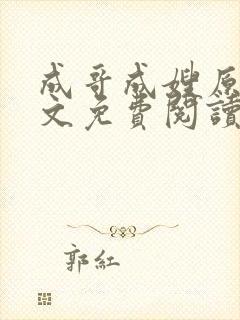 成哥成嫂原
文免費閱讀
郭紅